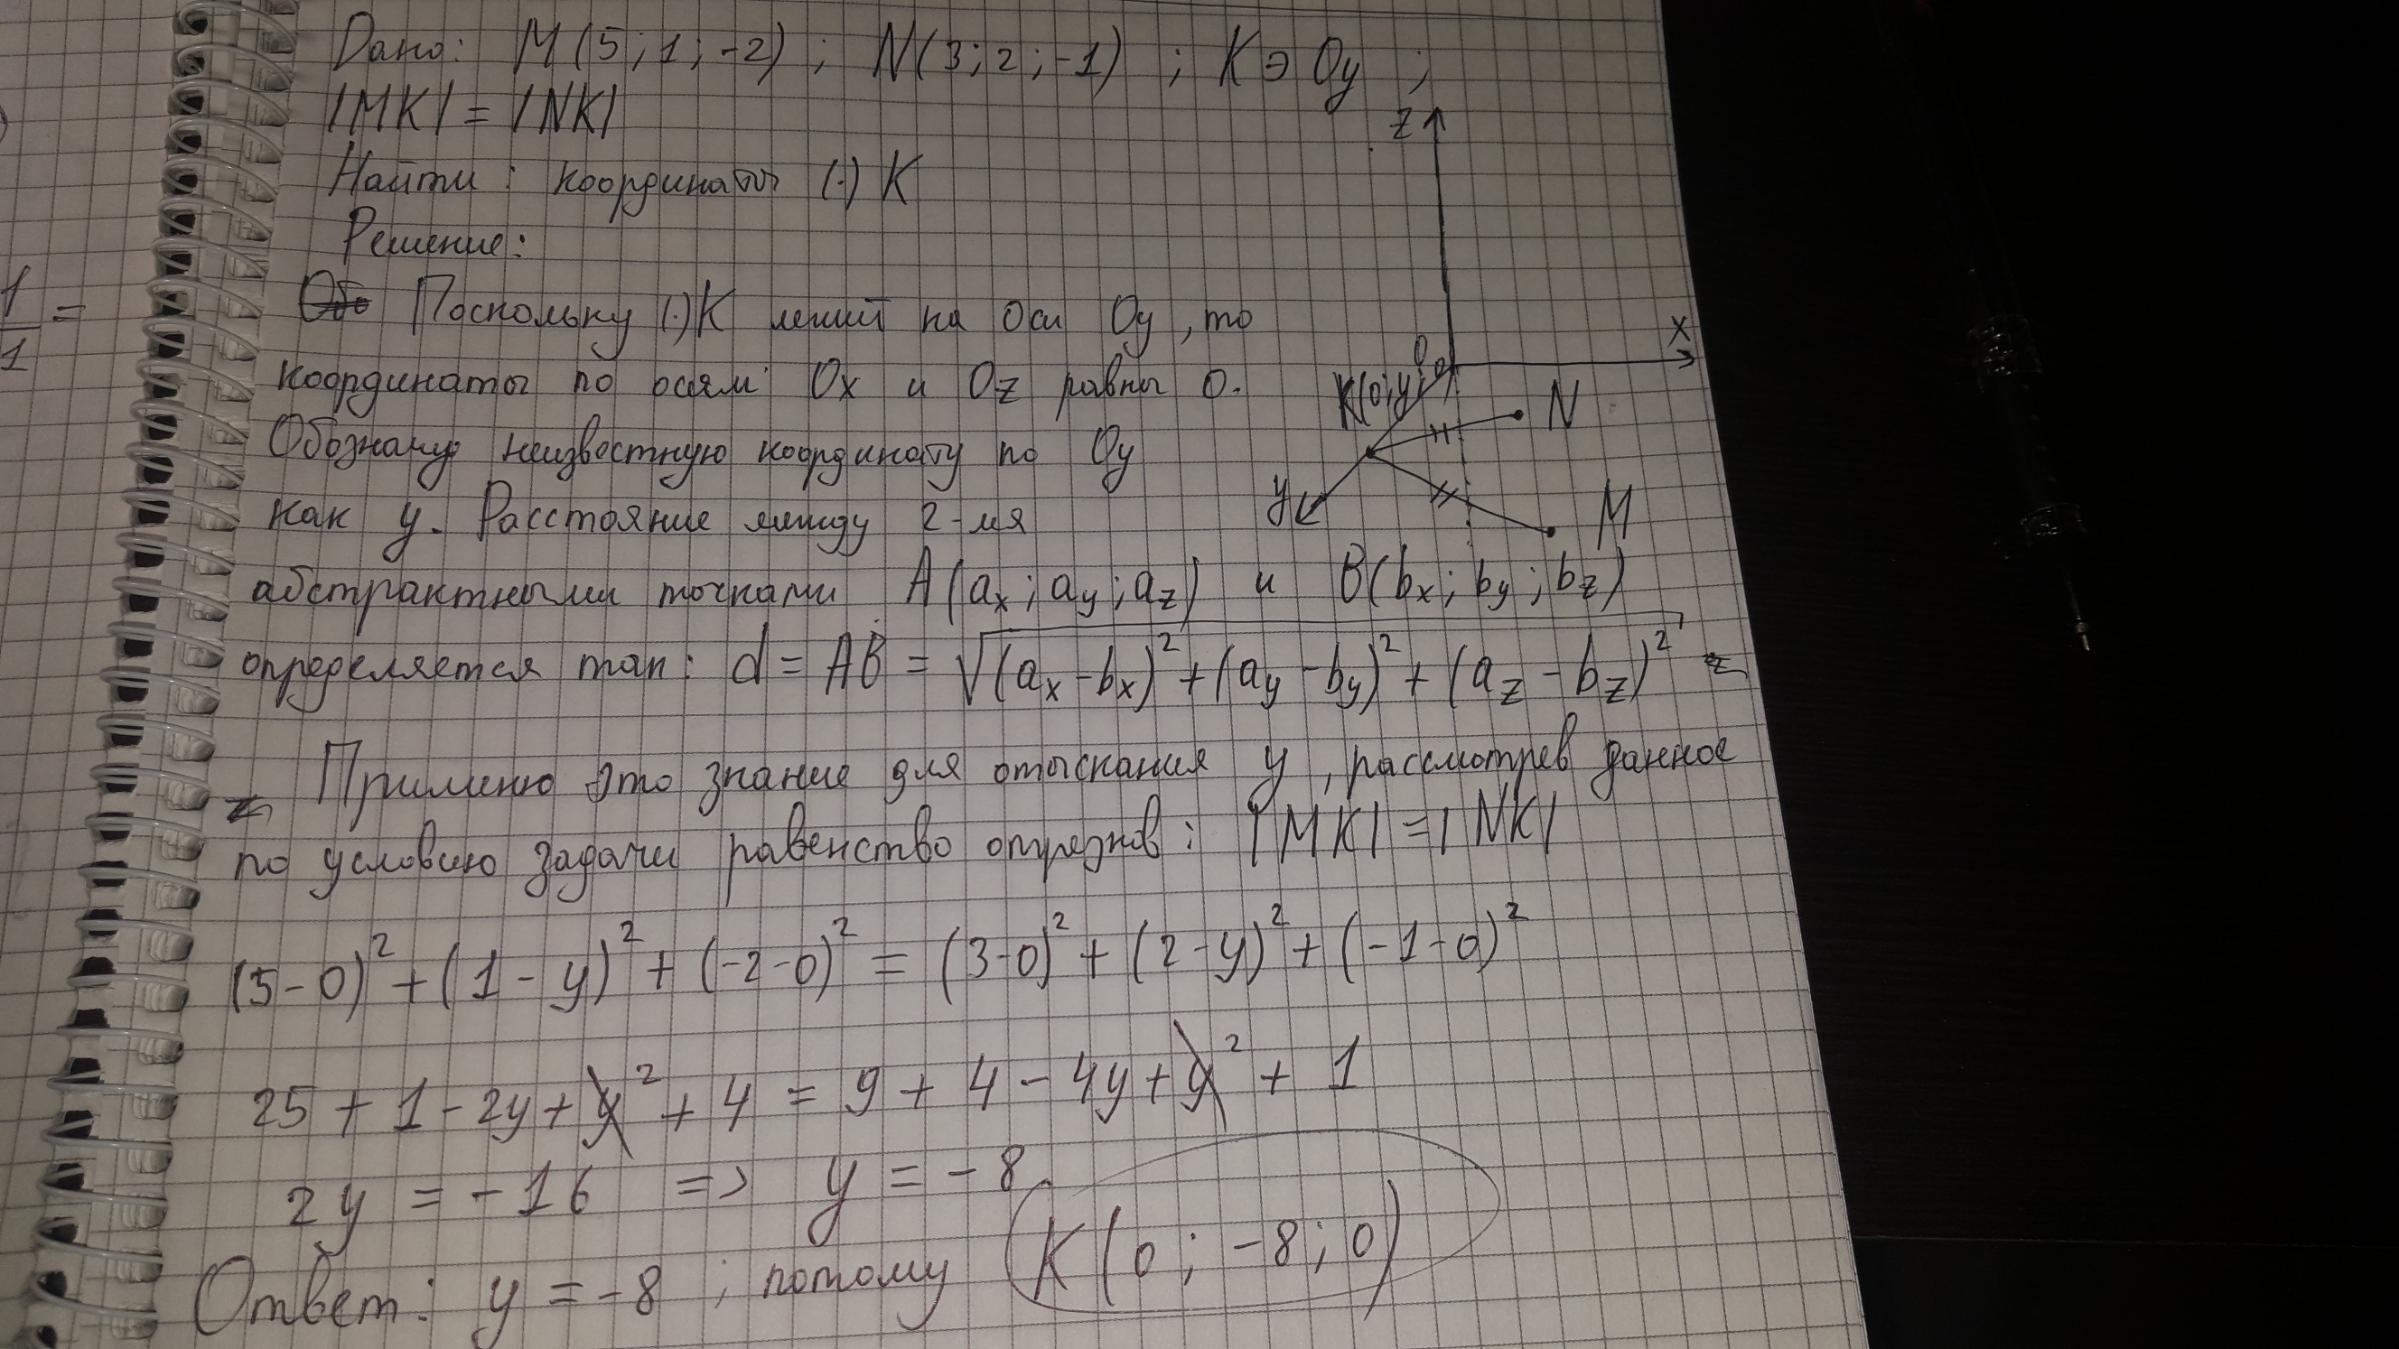 Дано: M(5;1;-2) ; N(3;2;-1) ; K э Oy ;
|MK| = |NK|
Найти: координаты (·) K
Решение:
Поскольку (·)K лежит на оси Oy, то
координаты по осям Ox и Oz равны 0.
Обозначу неизвестную координату по Oy
как y. Расстояние между 2-мя
абстрактными точками A(aₓ; a_y; a_z) и B(bₓ; b_y; b_z)
определяется так: d = AB = √((aₓ-bₓ)²+(a_y-b_y)²+(a_z-b_z)²)
Применю это знание для отыскания y, рассмотрев данное
по условию задачи равенство отрезков: |MK| = |NK|
(5-0)² + (1-y)² + (-2-0)² = (3-0)² + (2-y)² + (-1-0)²
25 + 1 - 2y + y² + 4 = 9 + 4 - 4y + y² + 1
2y = -16 => y = -8
Ответ: y = -8 ; потому K(0; -8; 0)
z
x
0
K(0;y;0)
N
y
M
1
1
=